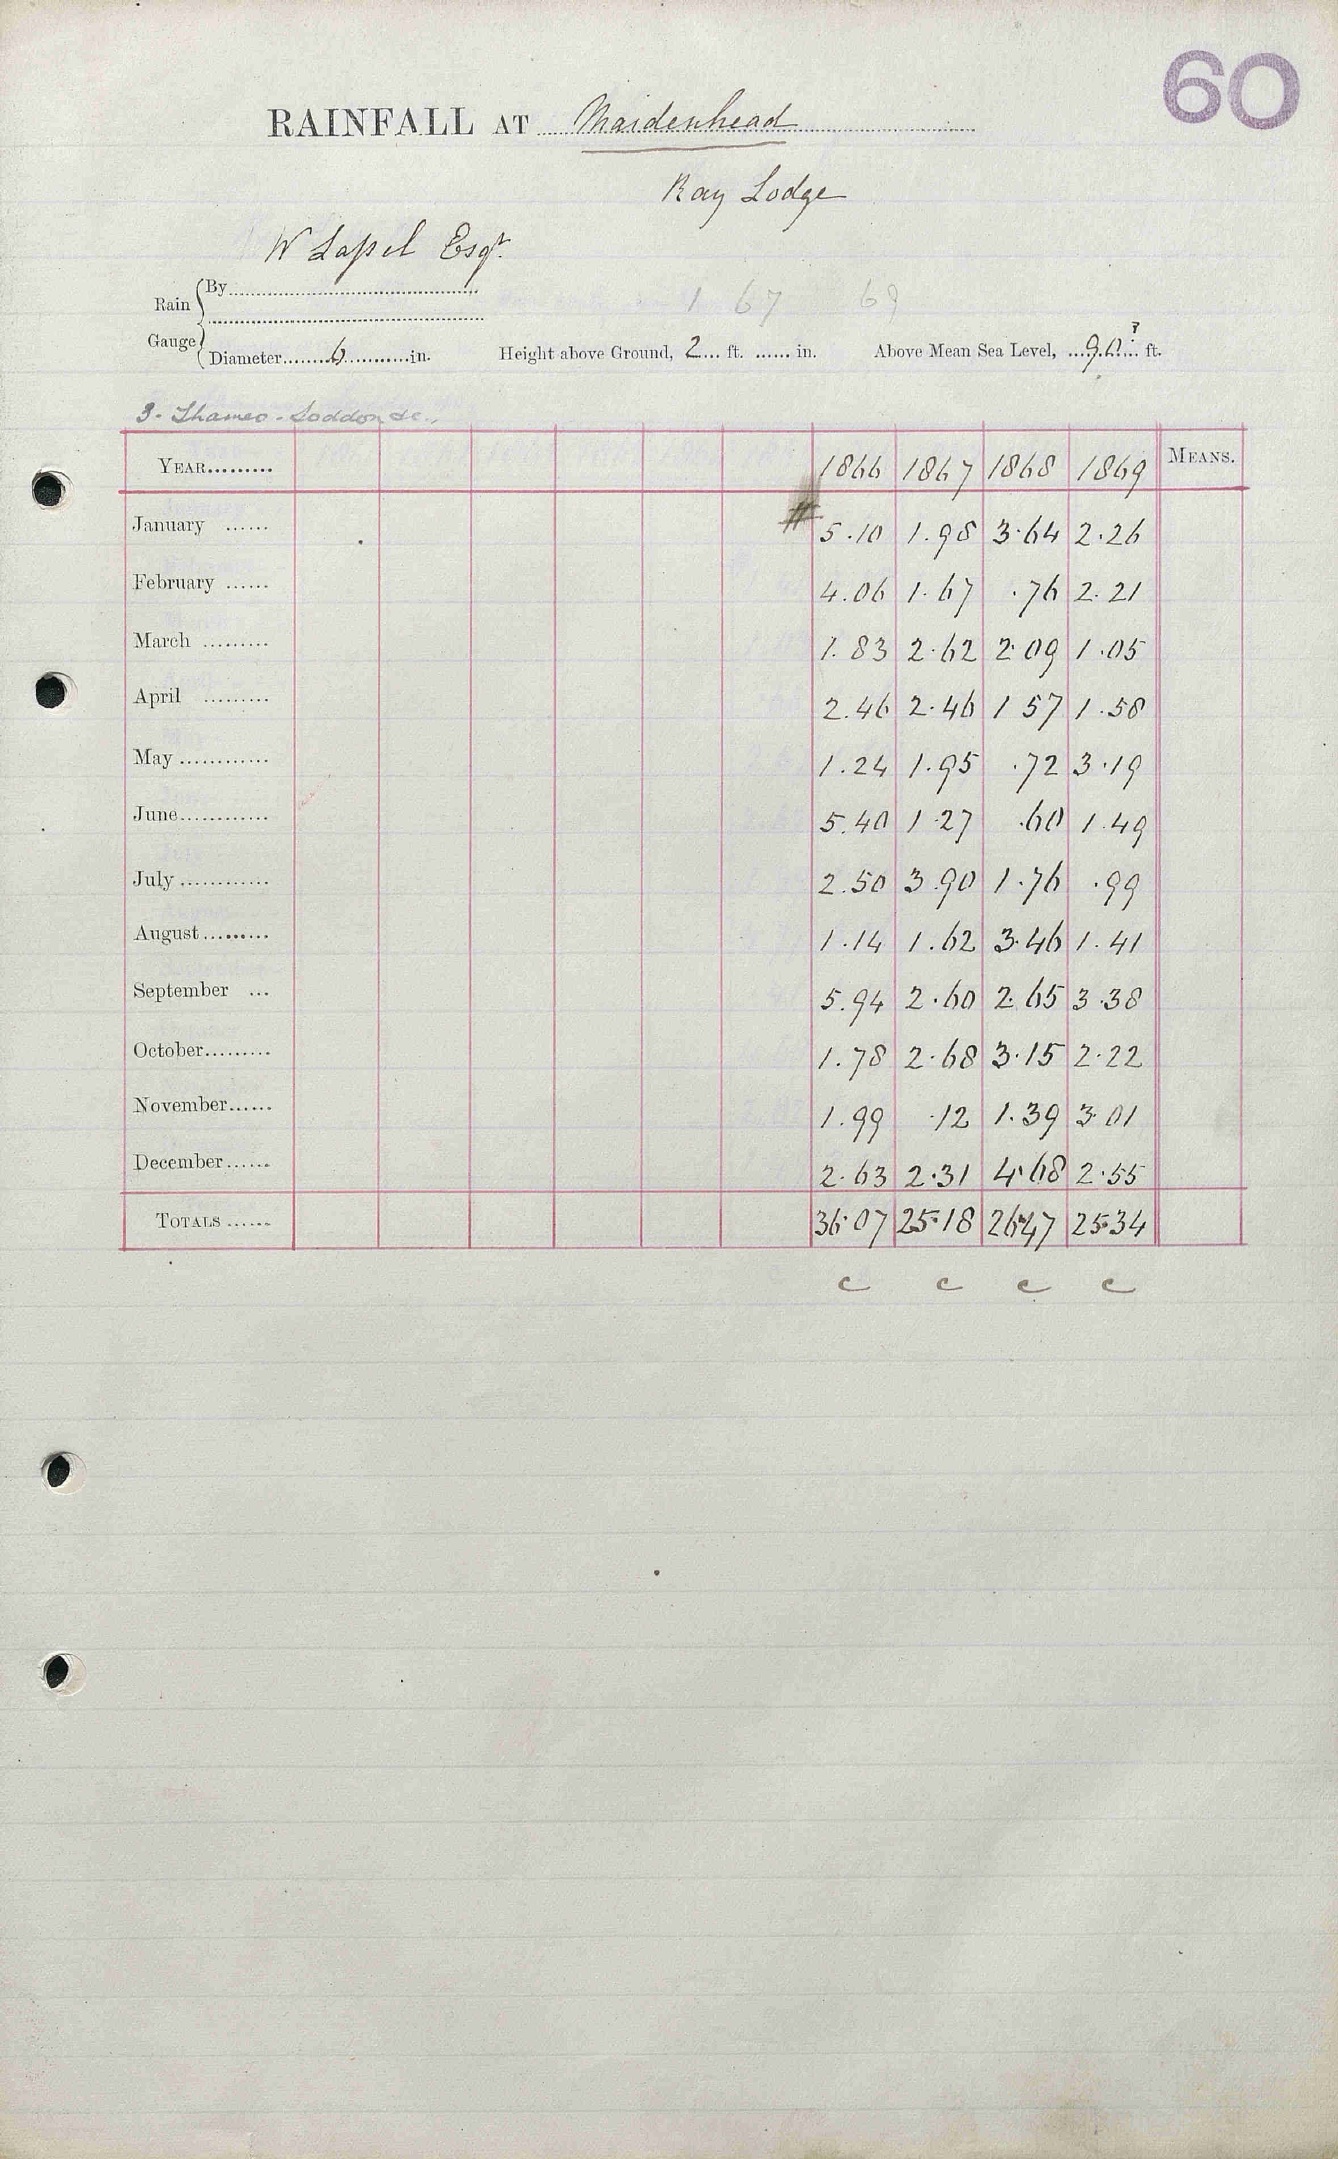 60
RAINFALL AT Maidenhead
Ray Lodge
W Lassel Esqr.
Rain Gauge
By
1 67 69
Diameter 6 in. Height above Ground, 2 ft. in. Above Mean Sea Level, 90? ft.
3 - Thames - Loddon &c.,
YEAR 1866 1867 1868 1869 MEANS.
January # 5.10 1.98 3.64 2.26
February 4.06 1.67 .76 2.21
March 1.83 2.62 2.09 1.05
April 2.46 2.46 1 57 1.58
May 1.24 1.95 .72 3.19
June 5.40 1.27 .60 1.49
July 2.50 3.90 1.76 .99
August 1.14 1.62 3.46 1.41
September 5.94 2.60 2.65 3.38
October 1.78 2.68 3.15 2.22
November 1.99 .12 1.39 3.01
December 2.63 2.31 4.68 2.55
TOTALS 36.07 25.18 26.47 25.34
c c c c